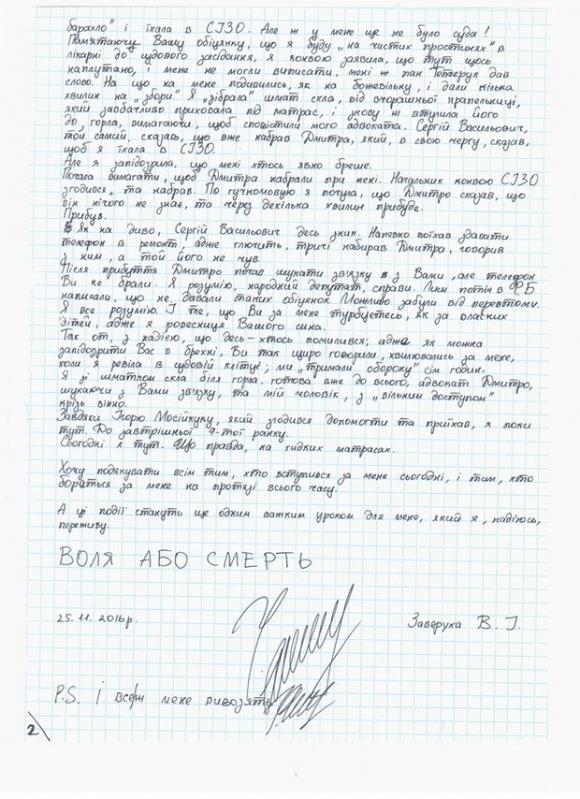 барахло" і їхала в СІЗО. Але ж у мене ще не було суда!
Пам'ятаючи Вашу обіцянку, що я буду „на чистих простинях" в
лікарні до судового засідання, я конвою заявила, що тут щось
наплутано, і мене не могли виписати, мені ж пан Тетерук дав
слово. На що на мене подивились, як на божевільну, і дали кілька
хвилин на „збори". Я „зібрала" шмат скла, від вчорашньої крапельниці,
який завбачливо приховала під матрас, і знову ж втупила його
до горла, вимагаючи, щоб сповістили мого адвоката. Сергій Васильович,
той самий, сказав, що вже набрав Дмитра, який, в свою чергу, сказав,
щоб я їхала в СІЗО.
Але я запідозрила, що мені хтось явно бреше.
Почала вимагати, щоб Дмитра набрали при мені. Начальник конвою СІЗО
згодився, та набрав. По гучномовцю я почула, що Дмитро сказав, що
він нічого не знає, та через декілька хвилин прибуде.
Прибув.
Як на диво, Сергій Васильович десь зник. Напевно поїхав здавати
телефон в ремонт, адже глючить, тричі набирав Дмитра, говорив
з ним, а той його не чув.
Після прибуття Дмитро почав шукати зв'язку з Вами, але телефон
Ви не брали. Я розумію, народний депутат, справи. Лиш потім в ФБ
написали, що не давали таких обіцянок. Можливо забули від перевтоми.
Я все розумію. І те, що Ви за мене турбуєтесь, як за власних
дітей, адже я ровесниця Вашого сина.
Так от, з надією, що десь-хтось помилився, адже як можна
запідозрити Вас в брехні, Ви так щиро говорили, хвилювались за мене,
коли я ревіла в судовій клітці; ми „тримали оборону" сім годин.
Я зі шматком скла біля горла, готова вже до всього, адвокат Дмитро,
шукаючи з Вами зв'язку, та мій чоловік, з „вільним доступом"
крізь вікно.
Завдяки Ігорю Мосійчуку, який згодився допомогти та приїхав, я поки
тут. До завтрішньої 9-тої ранку.
Сьогодні я тут. Що правда, на гидких матрасах.
Хочу подякувати всім тим, хто вступився за мене сьогодні, і тим, хто
бореться за мене на протязі всього часу.
А ці події стануть ще одним важким уроком для мене, який я, надіюсь,
переживу.
ВОЛЯ АБО СМЕРТЬ
25.11.2016р. Заверуха В. І.
P.S. І все ж мене вивозять
2